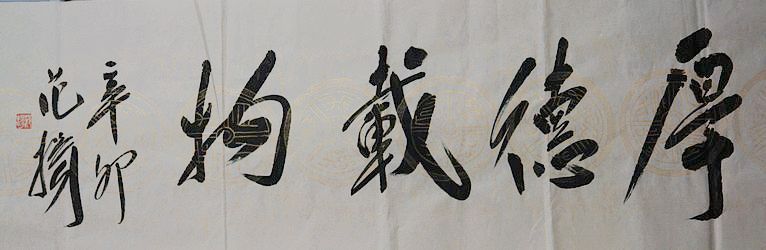 厚德載物
辛卯
范